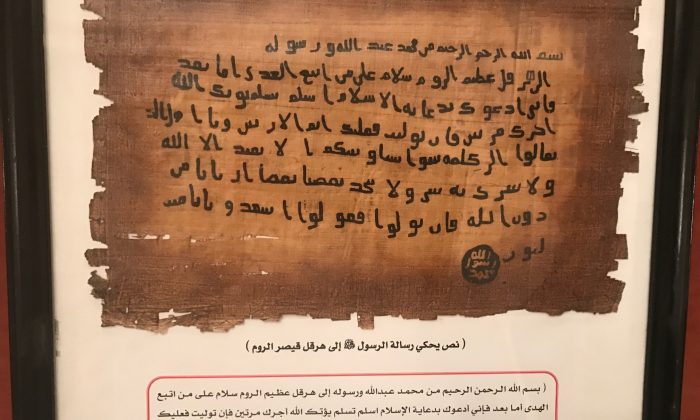 بسم الله الرحمن الرحيم من محمد عبد الله ورسوله
الى هرقل عظيم الروم سلام على من اتبع الهدى اما بعد
فانى ادعوك بدعايه الاسلام اسلم تسلم يوتك الله
اجرك مرتين فان توليت فعليك اثم
تعالوا الى كلمه سوا الا نعبد الا الله
ولا نشرك به ولا يتخذ بعضنا بعضا اربابا من
دون الله فان تولوا فقولوا اشهدوا بانا
الله
رسول
محمد
( نص يحكي رسالة الرسول ﷺ إلى هرقل قيصر الروم )
( بسم الله الرحمن الرحيم من محمد عبدالله ورسوله إلى هرقل عظيم الروم سلام على من اتبع
الهدى أما بعد فإني أدعوك بدعاية الإسلام اسلم تسلم يؤتك الله أجرك مرتين فإن توليت فعليك